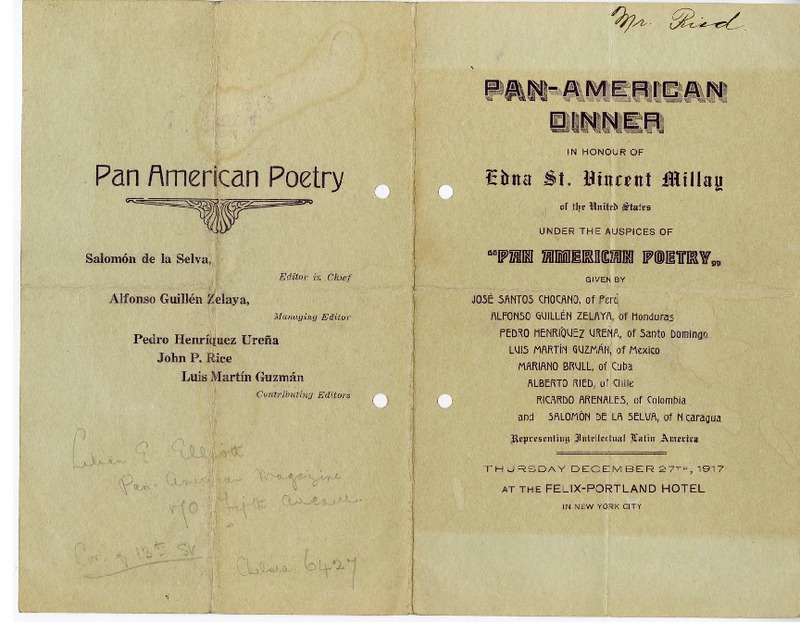 Pan American Poetry
Salomón de la Selva,
Editor in Chief
Alfonso Guillén Zelaya,
Managing Editor
Pedro Henríquez Ureña
John P. Rice
Luis Martín Guzmán
Contributing Editors
Lilian E. Elliott
Pan-American Magazine
Fifth Avenue
Cor. of 13th St
Chelsea 6427
Mr. Ried
PAN-AMERICAN
DINNER
IN HONOUR OF
Edna St. Vincent Millay
of the United States
UNDER THE AUSPICES OF
"PAN AMERICAN POETRY„
GIVEN BY
JOSÉ SANTOS CHOCANO, of Perú
ALFONSO GUILLÉN ZELAYA, of Honduras
PEDRO HENRÍQUEZ UREÑA, of Santo Domingo
LUIS MARTÍN GUZMÁN, of Mexico
MARIANO BRULL, of Cuba
ALBERTO RIED, of Chile
RICARDO ARENALES, of Colombia
and SALOMÓN DE LA SELVA, of Nicaragua
Representing Intellectual Latin America
THURSDAY DECEMBER 27TH, 1917
AT THE FELIX-PORTLAND HOTEL
IN NEW YORK CITY